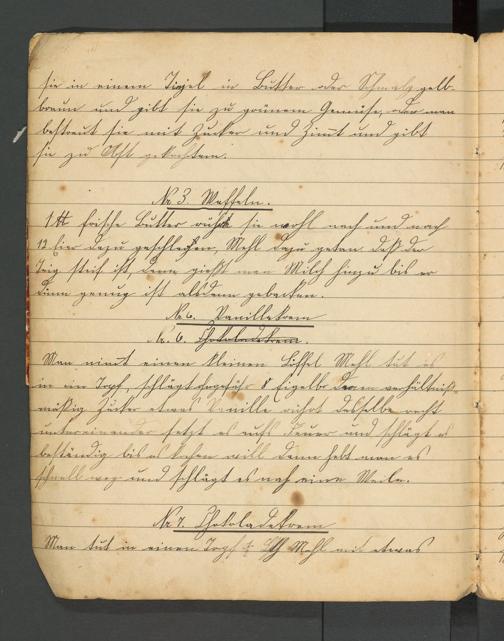 sie in einem Tigel in Butter oder Schmalz gelb
braun und gibt sie zu grünem Gemüse, oder man
bestreut sie mit Zucker und Zimt und gibt
sie zu Obst gekochtem.
No 3. Waffeln.
1 ℔ frische Butter rührt sie wohl nach und nach
12 Eier dazu geschlagen, Mehl dazu gethan daß der
Teig steif ist, dann gießt man Milch hinzu bis er
dünn genug ist alsdann gebacken.
No 6. Vanillekrem
No. 6. Chokoladekrem.
Man nimt einen kleinen Löffel Mehl tut es
in ein Topf, schlägt ungefähr 8 Eigelbe daran verhältniß-
mäßig Zucker etwas Vanille rührt dasselbe recht
untereinander setzt es aufs Feuer und schlägt es
beständig bis es kochen will dann hebt man es
schnell weg und schlägt es noch eine Weile.
No 7. Chokoladekrem
Man tut in einen Topf Lth Mehl mit etwas